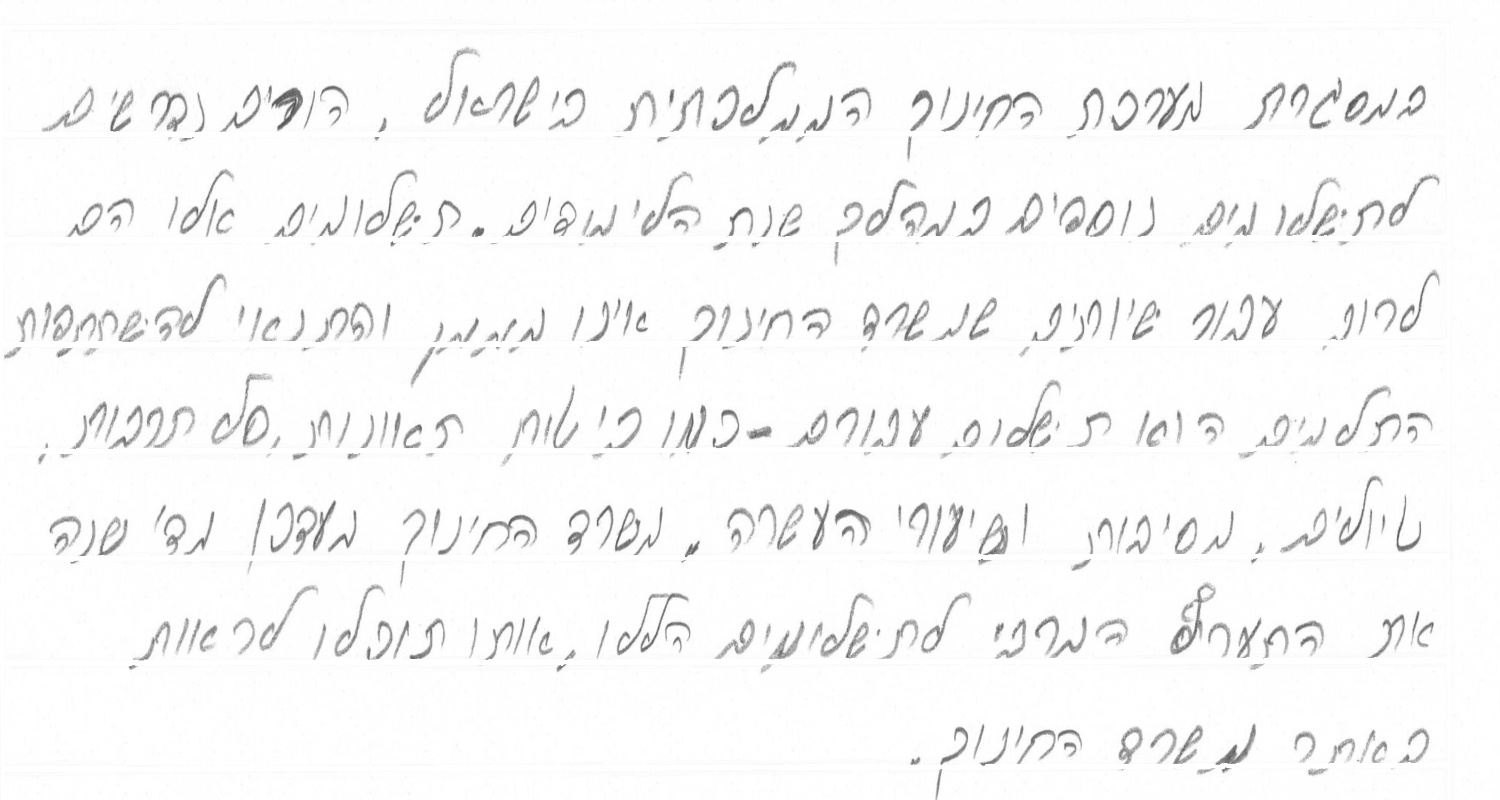 במסגרת מערכת החינוך הממלכתית בישראל, הורים נדרשים
לתשלומים נוספים במהלך שנת הלימודים. תשלומים אלו הם
לרוב עבור שירותים שמשרד החינוך אינו מממן והתנאוי להשתתפות
התלמים הוא תשלום עבורם - כמו ביטוח תאונות, סל תרבות,
טיולים, מסיבות ושיעורי העשרה. משרד החינוך מעדכן מדי שנה
את התעריף המרבי לתשלומים הללו, אותו תוכלו לראות
באתר משרד החינוך.